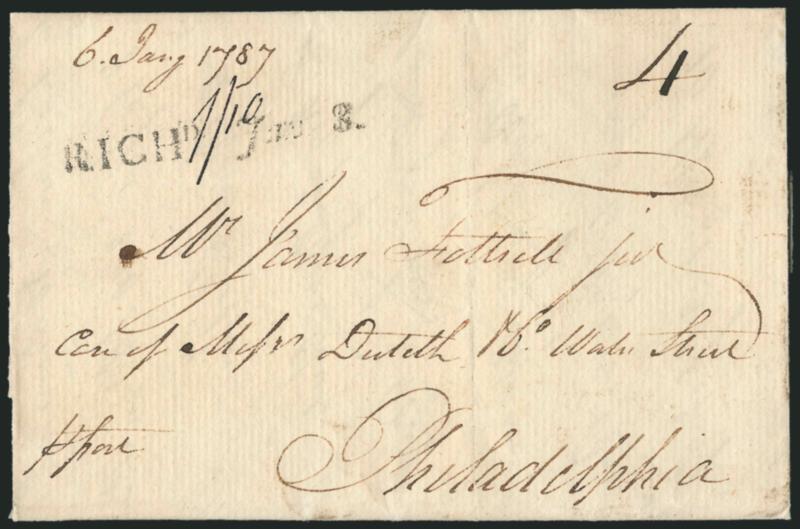 6. Jany 1787
4
1/10
RICHD Jan 8.
Mr James Fottrell Jur
Care of Messrs Duteth &Co. Water Street
Philadelphia